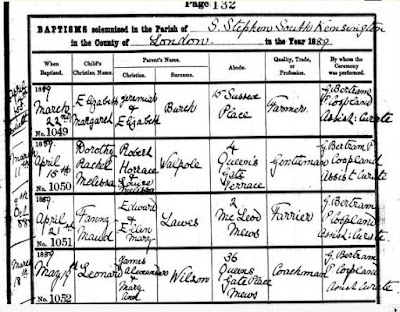 Page 132
BAPTISMS solemnized in the Parish of S. Stephen South Kensington
in the County of London in the Year 1889
When Baptised. Child's Christian Name. Parent's Name. Christian. Surname. Abode. Quality, Trade, or Profession. By whom the Ceremony was performed.
1889 March 22nd No. 1049 Elizabeth Margaret Jeremiah & Elizabeth Burch 10 Sussex Place Farmer G. Bertram P Coopland Assist: Curate
1889 April 15th No. 1050 Dorothy Rachel Melissa Robert Horrace & Louise Melissa Walpole 4 Queen's Gate Terrace Gentleman G. Bertram P Coopland Assist Curate
1889 April 21st No. 1051 Fanny Maud Edward & Ellen Mary Lawes 2 McLeod Mews Farrier G Bertram P Coopland Assist: Curate
1889 May 19th No. 1052 Leonard James Alexander & Mary Ann Wilson 36 Queens Gate Place Mews Coachman G. Bertram P Coopland Assist Curate
March 11th
March 18th